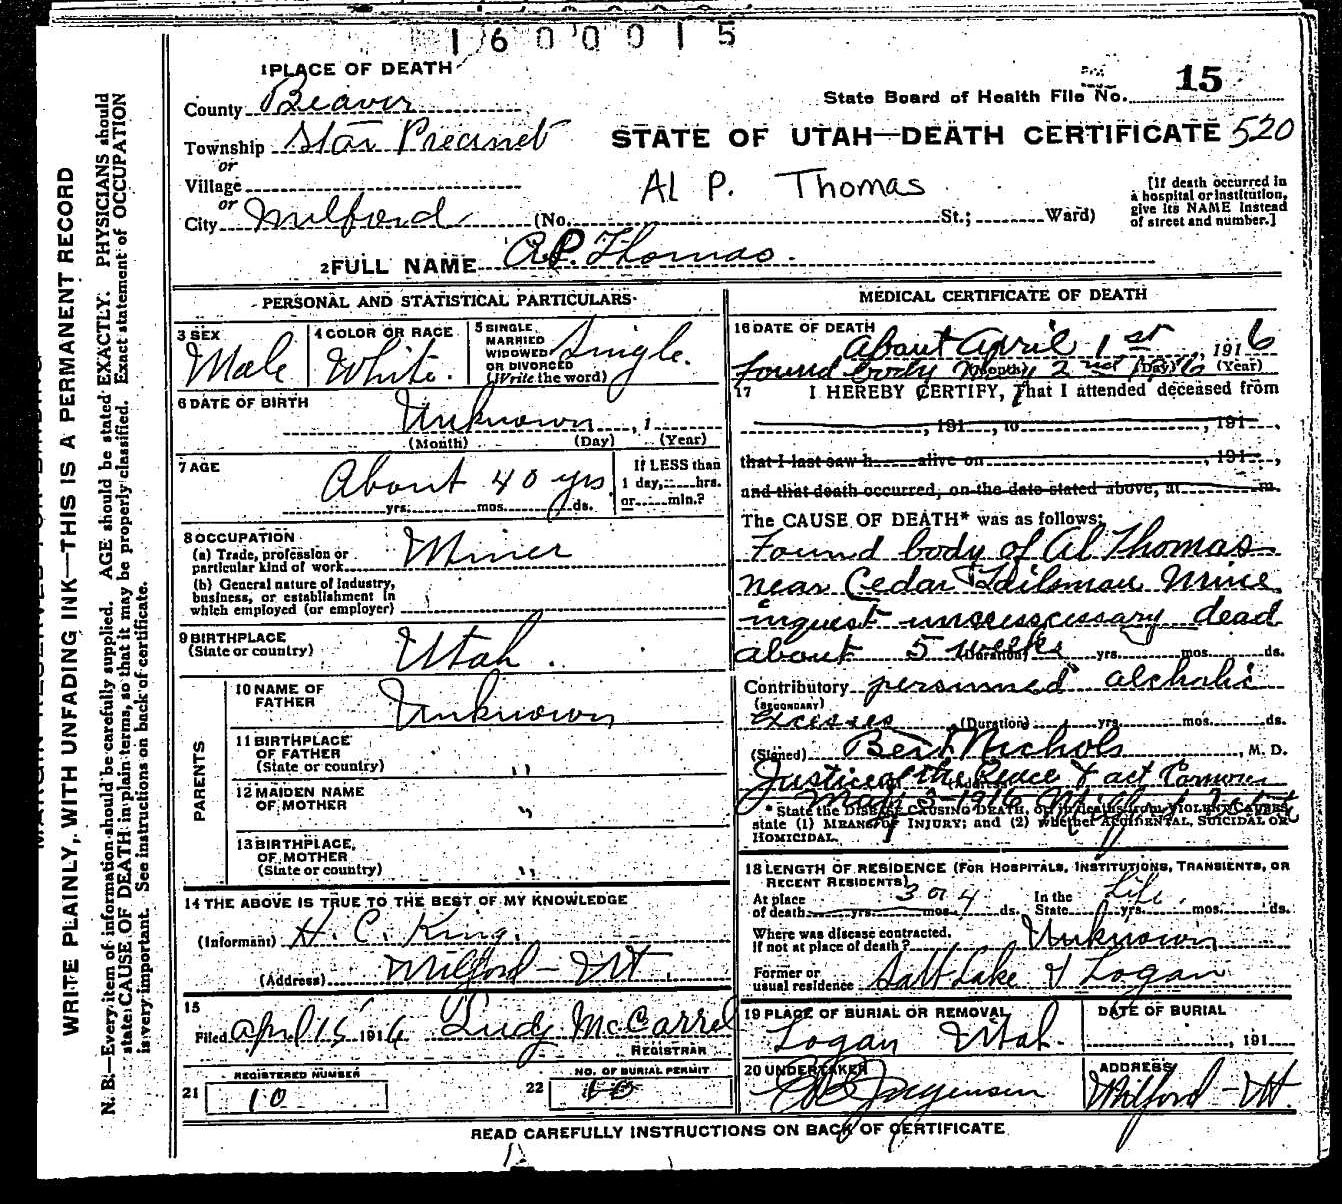 1600015
1 PLACE OF DEATH
15
State Board of Health File No.
County Beaver
STATE OF UTAH—DEATH CERTIFICATE 520
Township Star Precinct
or
Village
Al P. Thomas
or
City Milford (No. St.; Ward)
[If death occurred in
a hospital or institution,
give its NAME instead
of street and number.]
2 FULL NAME A.P. Thomas.
PERSONAL AND STATISTICAL PARTICULARS
3 SEX
Male
4 COLOR OR RACE
White.
5 SINGLE
MARRIED
WIDOWED
OR DIVORCED
(Write the word)
Single.
6 DATE OF BIRTH
Unknown, 1
(Month) (Day) (Year)
7 AGE
About 40 yrs
yrs. mos. ds.
If LESS than
1 day, hrs.
or min.?
8 OCCUPATION
(a) Trade, profession or
particular kind of work Miner
(b) General nature of Industry,
business, or establishment in
which employed (or employer)
9 BIRTHPLACE
(State or country) Utah.
PARENTS
10 NAME OF
FATHER Unknown
11 BIRTHPLACE
OF FATHER
(State or country) "
12 MAIDEN NAME
OF MOTHER "
13 BIRTHPLACE
OF MOTHER
(State or country) "
14 THE ABOVE IS TRUE TO THE BEST OF MY KNOWLEDGE
(Informant) H. C. King.
(Address) Milford - Ut
15
Filed April 15 1916 Ludy McCarrel
REGISTRAR
21 REGISTERED NUMBER
10
22 NO. OF BURIAL PERMIT
10
MEDICAL CERTIFICATE OF DEATH
16 DATE OF DEATH
About April 1st, 1916
found body 2nd 1916
(Month) (Day) (Year)
17 I HEREBY CERTIFY, That I attended deceased from
, 191 , to , 191 ,
that I last saw h alive on , 191 ,
and that death occurred, on the date stated above, at m.
The CAUSE OF DEATH* was as follows:
Found body of Al Thomas
near Cedar Talisman Mine
inquest unnecessary dead
about 5 weeks
(Duration) yrs. mos. ds.
Contributory alcholic
(SECONDARY)
Excesses (Duration) yrs. mos. ds.
(Signed) Bert Nichols, M. D.
Justice of the Peace & act Coroner
*State the DISEASE CAUSING DEATH, or, in deaths from VIOLENT CAUSES,
state (1) MEANS OF INJURY; and (2) whether ACCIDENTAL, SUICIDAL OR
HOMICIDAL.
18 LENGTH OF RESIDENCE (FOR HOSPITALS, INSTITUTIONS, TRANSIENTS, OR
RECENT RESIDENTS)
At place
of death yrs. 3 or 4 mos. ds.
In the
State Life yrs. mos. ds.
Where was disease contracted,
if not at place of death? Unknown
Former or
usual residence Salt Lake & Logan
19 PLACE OF BURIAL OR REMOVAL
Logan Utah.
DATE OF BURIAL
, 191
20 UNDERTAKER
Jorgensen
ADDRESS
Milford - Ut.
READ CAREFULLY INSTRUCTIONS ON BACK OF CERTIFICATE
WRITE PLAINLY, WITH UNFADING INK—THIS IS A PERMANENT RECORD
N. B.—Every item of information should be carefully supplied. AGE should be stated EXACTLY. PHYSICIANS should
state CAUSE OF DEATH in plain terms, so that it may be properly classified. Exact statement of OCCUPATION
is very important. See instructions on back of certificate.